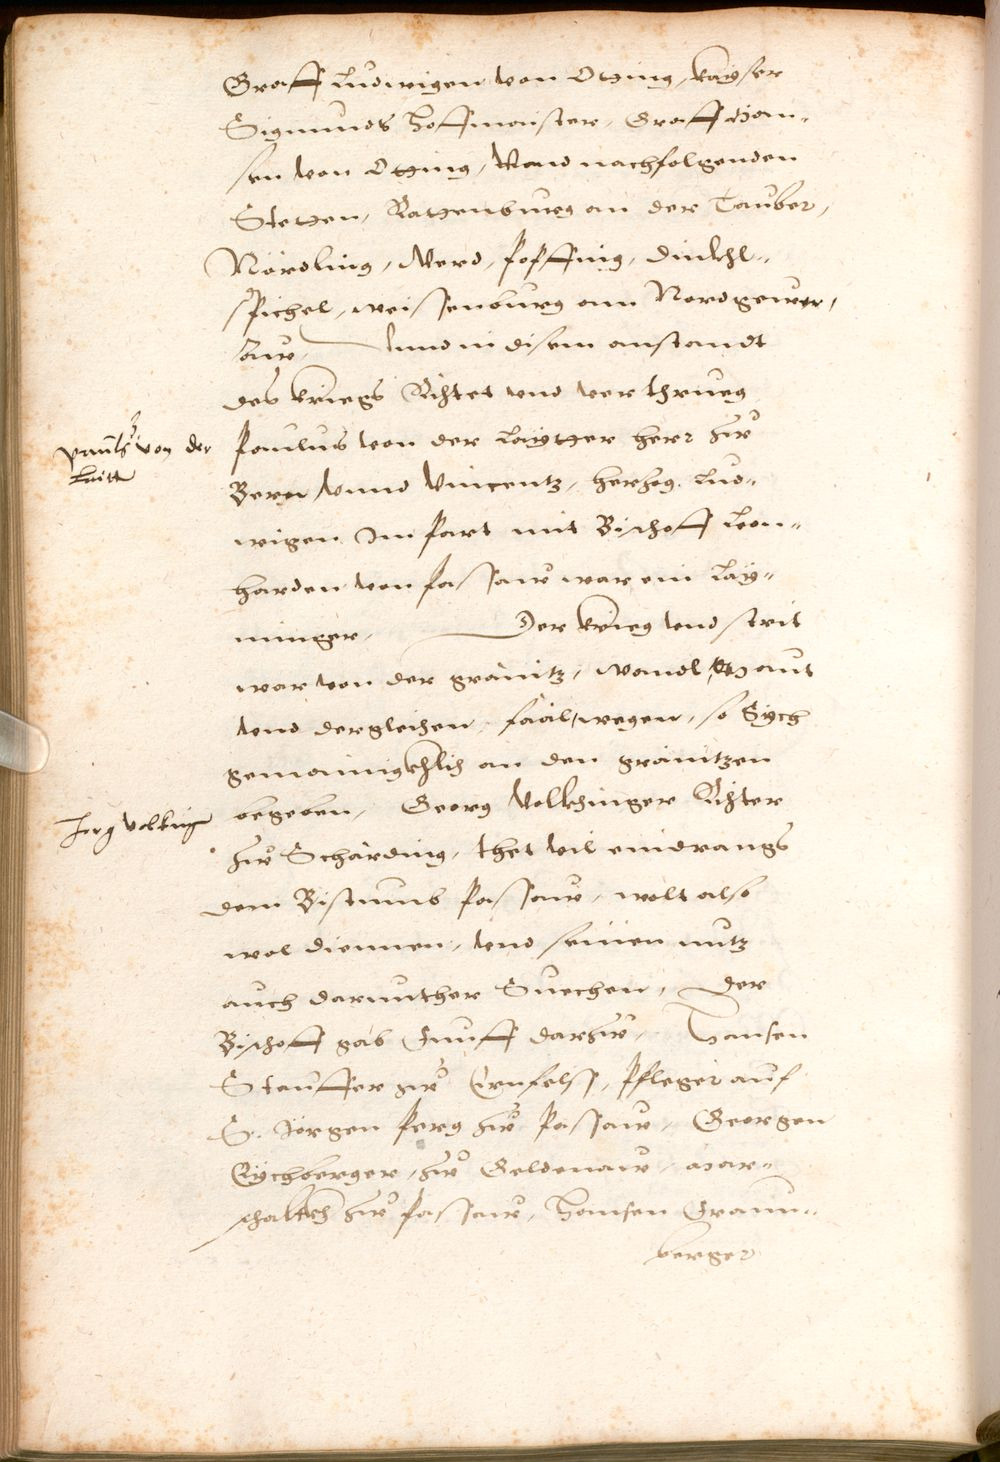 Graff Ludwigen von Otting, kayser
Sigmunds Hoffmaister, Graff Han-
sen von Otting, Vnnd nachfolgenden
Stetten, Rattenburg an der Tauber,
Nördling, Werd, Popffing, Dinkhl-
spichel, weissenburg am Nordgew,
Vnnd in disem anstandt
des kriegs Richtet vnd verthrueg
Paulus von der Laytter herr zue
Bern Vnnd Vincentz, hertzog Lud-
wigen Im Part mit Bischoff Leon-
harden von Passaw war ein Lay-
minger, Der krieg vnd strit
war von der gränitz, wandl, Maut
vnd dergleichen, fääl wegen, so Sych
gemainigkhlich an den gränitzen
begeben, Georg Volkhinger Richter
zue Schärding, thet vil eindrangs
dem Bistumb Passaw, wolt also
wol diennen, vnd seinen nutz
auch darunther Suechen, Der
Bischoff gab Funff darzue, Hansen
Stauffer zue Ernfelss, Pfleger auf
S. Jörgen Perg zue Passaw, Georgen
Eychberger, zue Geldenaw, Mar-
schalkh zue Passaw, Hansen Fraun-
berger
Pauls von der
Laitter
Jorg Volkinger